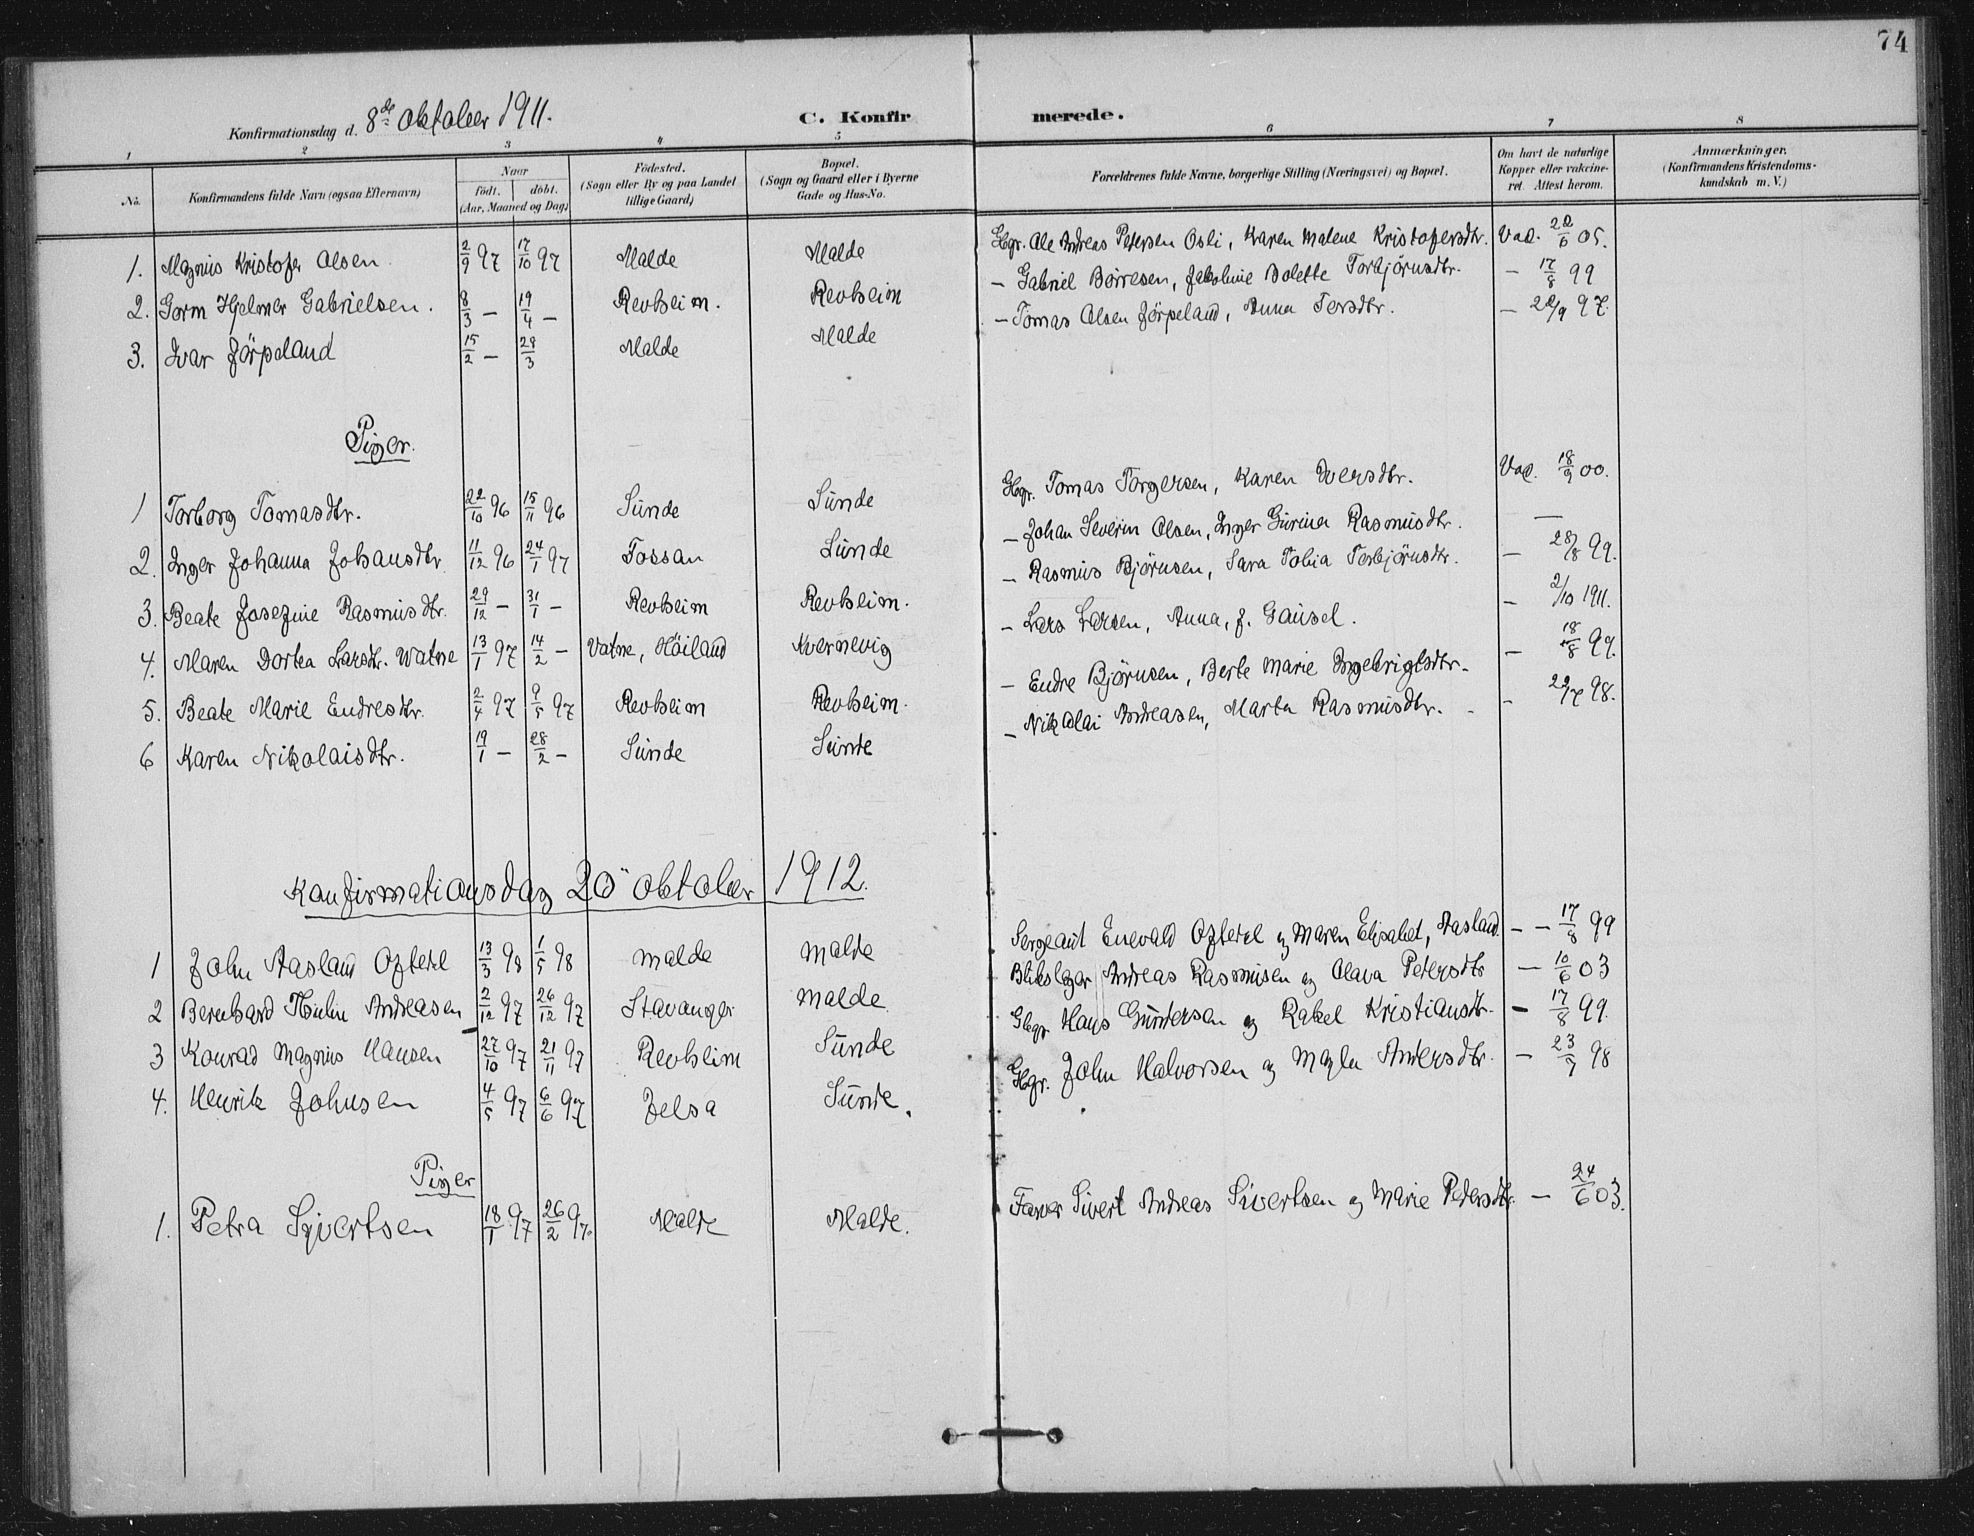 74
Konfirmationsdag d. 8de Oktober 1911.
C. Konfirmerede.
1 2 3 4 5 6 7 8
No.
Konfirmandens fulde Navn (ogsaa Efternavn)
Naar
født. døbt.
(Aar, Maaned og Dag)
Fødested.
(Sogn eller By og paa Landet
tillige Gaard)
Bopæl.
(Sogn og Gaard eller i Byerne
Gade og Hus-No.
Forældrenes fulde Navne, borgerlige Stilling (Næringsvei) og Bopæl.
Om havt de naturlige
Kopper eller vakcine-
ret. Attest herom.
Anmærkninger.
(Konfirmandens Kristendoms-
kundskab m. V.)
1. Magnus Kristofer Olsen 2/9 97 17/10 97 Malde Malde Gbgr. Ole Andreas Petersen Osli, Karen Malene Kristofersdtr. Vac. 22/6 05.
2. Gorm Hjelmer Gabrielsen. 8/3 – 19/4 – Revheim. Revheim – Gabriel Børresen, Jakobine Bolette Torbjørnsdtr. – 17/8 99
3. Ivar Jörpeland 15/2 – 28/3 Malde Malde – Tomas Olsen Jörpeland, Anna Tersdtr. – 22/9 97.
Piger.
1 Torborg Tomasdtr. 22/10 96 15/11 96 Sunde Sunde Gbgr. Tomas Torgersen, Karen Iversdtr. Vac. 18/9 00.
2. Inger Johanna Johansdtr. 11/12 96 24/1 97 Fossan Sunde – Johan Severin Olsen, Inger Gurina Rasmusdtr. —
3. Beate Josefine Rasmusdtr. 29/12 – 31/1 – Revheim Revheim. – Rasmus Bjørnsen, Sara Tobia Torbjørnsdtr. – 28/8 99.
4. Maren Dortea Larsdtr. Watne 13/1 97 14/2 – Vatne, Höiland Kvernevig – Lars Larsen, Anna, f. Gausel. – 2/10 1911.
5. Beate Marie Endresdtr. 2/4 97 9/5 97 Revheim Revheim. – Endre Bjørnsen, Berte Marie Ingebrigtsdtr. – 18/8 99.
6 Karen Nikolaisdtr. 19/1 – 28/2 – Sunde Sunde – Nikolai Andreasen, Marta Rasmusdtr. - 22/7 98.
Konfirmationsdag 20 Oktober 1912.
1 John Aasland Oftedl 13/3 98 1/5 98 Malde Malde Sergeant Enevald Oftedl og Maren Elisabet, Aasland – – 17/8 99
2 Bernhard Andreasen 2/12 97 26/12 97 Stavanger Malde Blikslager Andreas Rasmusen og Olava Petersdtr – 10/6 03
3 Konrad Magnus Hansen 27/10 97 21/11 97 Revheim Sunde Gbgr Hans Gundersen og Rakel Kristiansdtr. – 17/8 99.
4. Henrik Johnsen 4/5 97 6/6 97 Jelsa Sunde. Gbgr. John Halvorsen og Magla Andersdtr. – 23/9 98
Piger
1. Petra Syvertsen 18/1 97 26/2 97. Malde Malde. Farver Sivert Andreas Sivertsen og Marie Petersdtr. – 24/6 03.